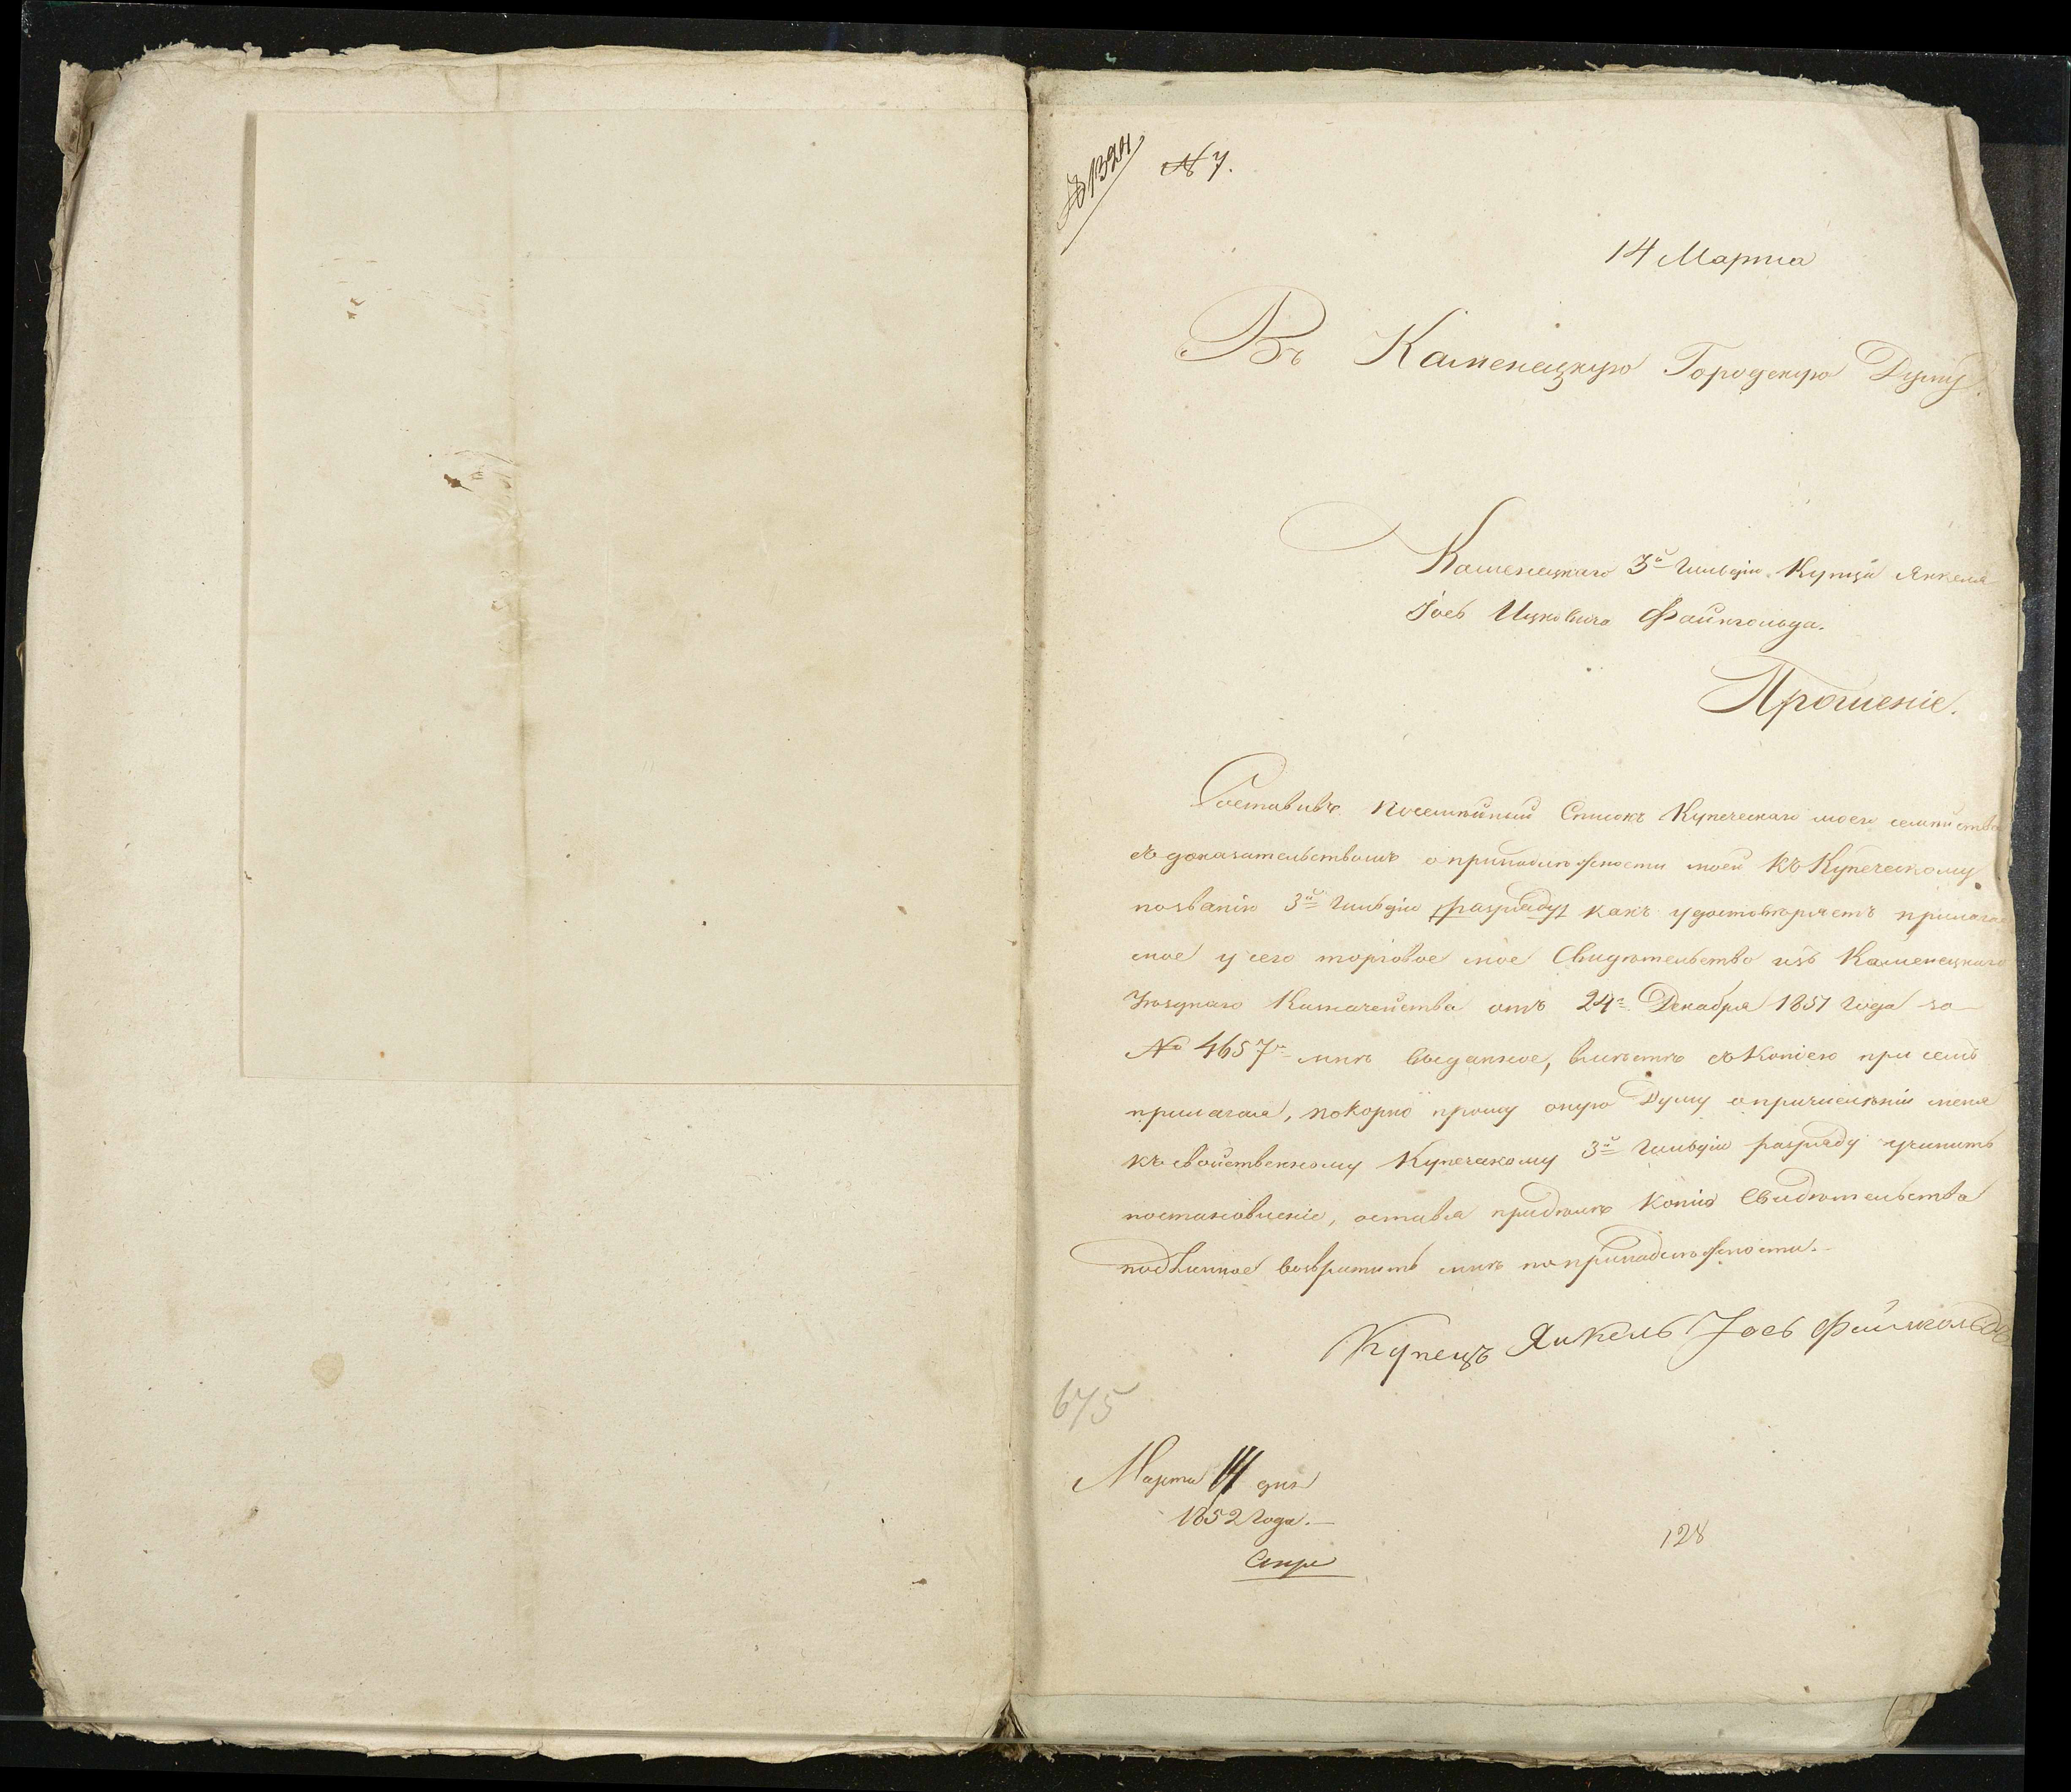 № 1324
№ 7.
14 Марта
Въ Каменецкую Городскую Думу.
Каменецкаго 3й Гильдіи Купца Янкеля
Іось Ицковича Файнгольда.
Прошеніе.
Составивъ посемейный Списокъ Купеческаго моего семейства
съ доказательствомъ о принадлѣжности моей къ Купеческому
позванію 3й Гильдіи разряду какъ удостовѣряетъ прилагае
мое у сего торговое мое Свидѣтельство изъ Каменецкаго
Уѣзднаго Казначейства отъ 24го Декабря 1851 года за
№ 4657м мнѣ выданное, вмѣстѣ съ Копіею при семъ
прилагая, покорно прошу оную Думу о причисленіи меня
къ свойственному Купеческому 3й Гильдіи разряду учинить
постановленіе, оставя при дѣлѣ копію Свидѣтельства
подлинное возвратить мнѣ по принадлѣжности.
Купецъ Янкель Іось Файнгольдъ
675
Марта 14 дня
1852 года.
128